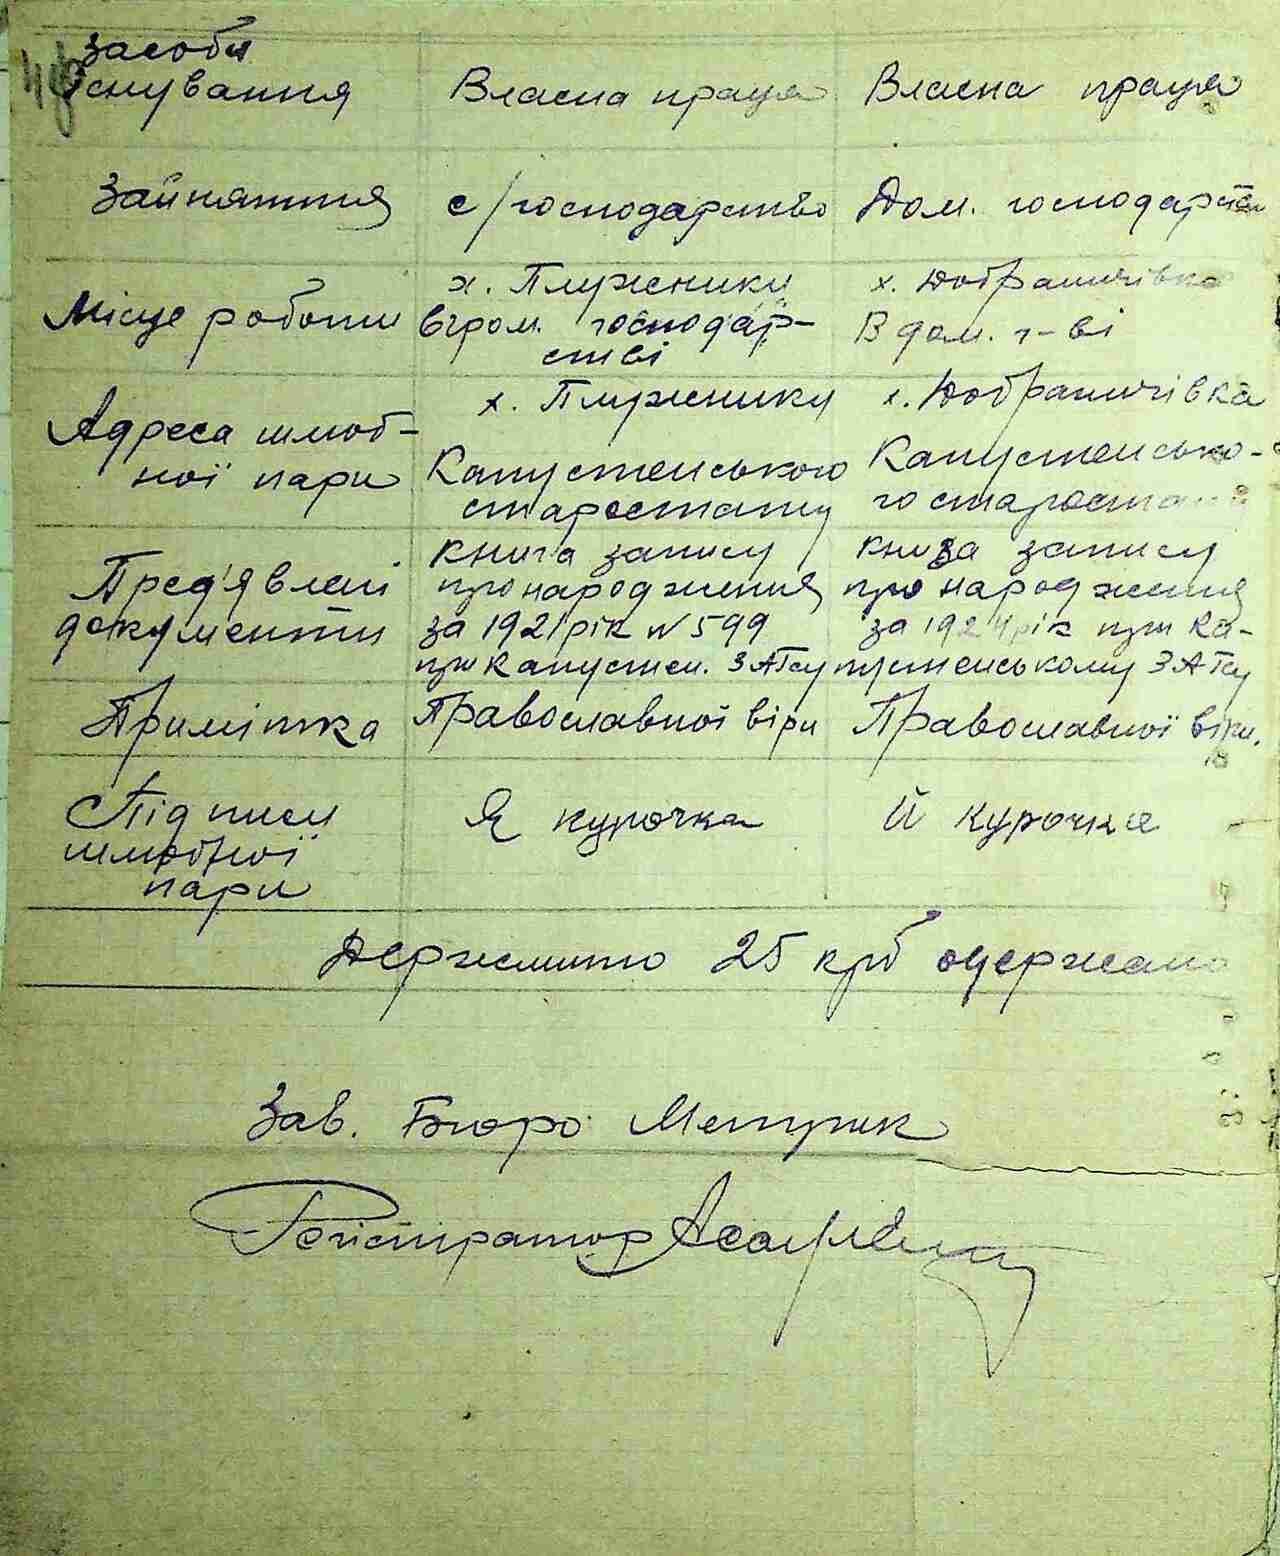 Засоби
існування Власна праця Власна праця
Зайняття с/господарство Дом. господарств
х. Плужники х. Добраничівка
Місце роботи в гром. господар- В дом. г-ві
стві
х. Плужники х. Добраничівка
Адреса шлюб-
ної пари Капустенського Капустенсько-
старостату го старостату
книга запису книга запису
Пред'явлені про народження про народження
документи за 1921 рік N 599 за 1924 рік при Ка-
при Капустен. ЗАГСу пустенському ЗАГСу
Примітка Православної віри Православної віри.
Підписи Я курочка Й курочка
шлюбної
пари
Держмито 25 крб одержано
Зав. Бюро
Реєстратор